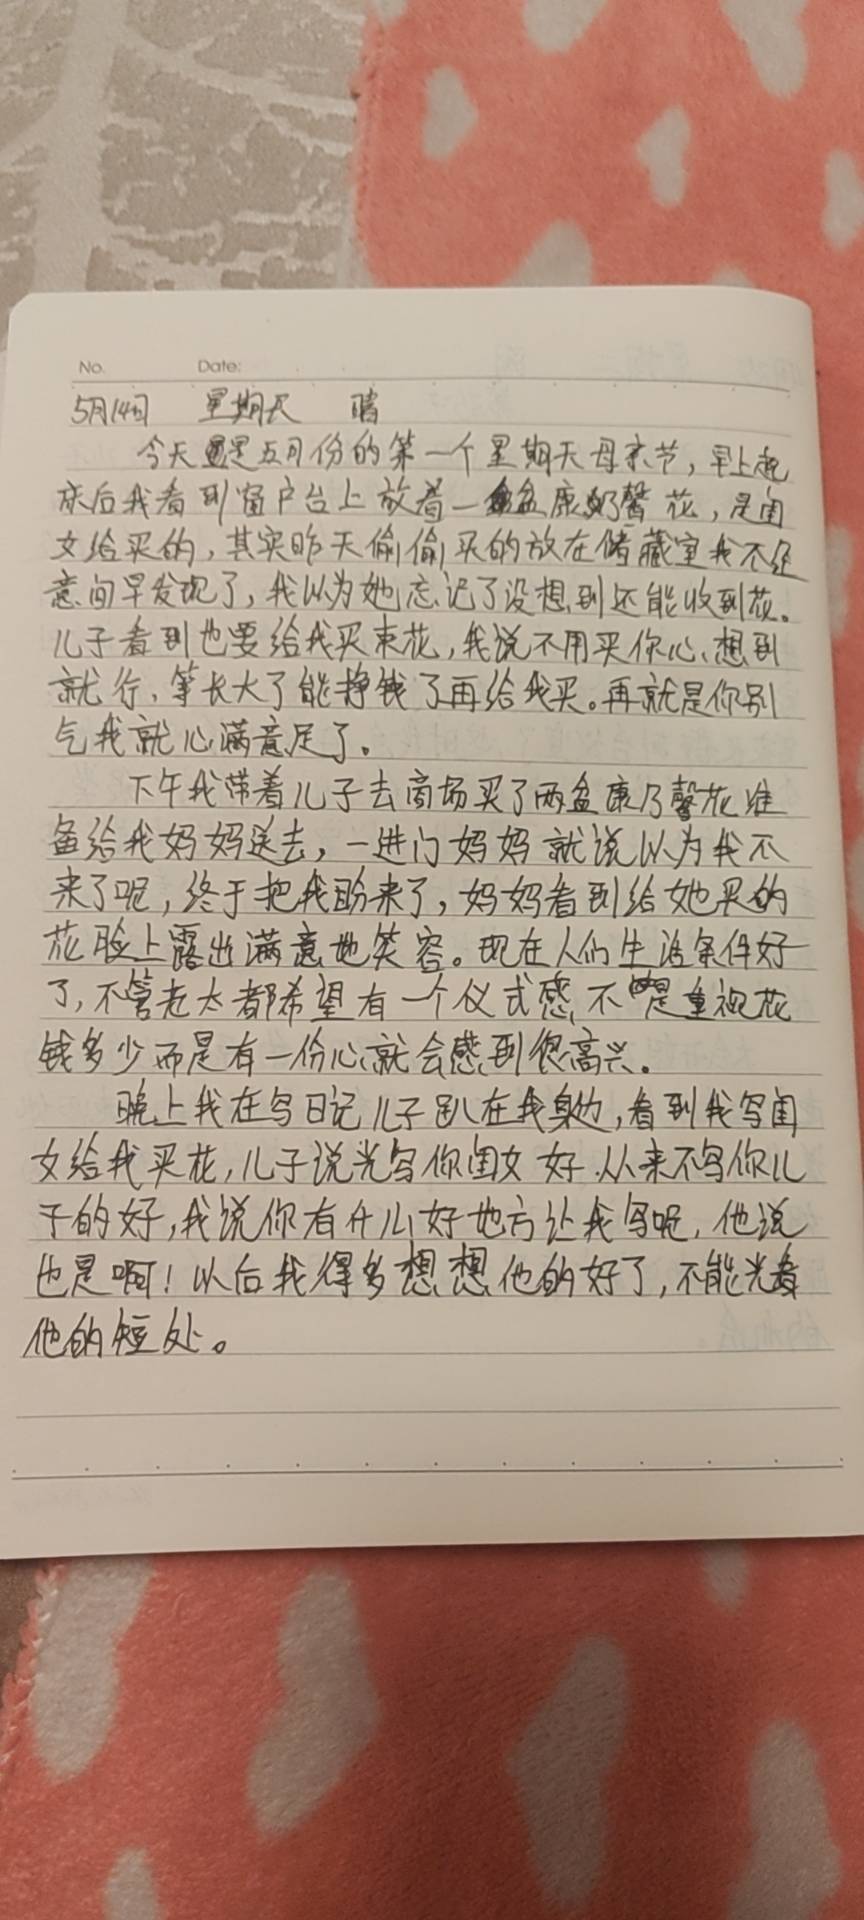 No. Date:
5月14日 星期天 晴
今天是五月份的第一个星期天母亲节，早上起
床后我看到窗户台上放着一盆康奶馨花，是闺
女给买的，其实昨天偷偷买的放在储藏室我不经
意间早发现了，我以为她忘记了没想到还能收到花。
儿子看到也要给我买束花，我说不用买你心、想到
就行、等长大了能挣钱了再给我买。再就是你别
气我就心满意足了。
下午我带着儿子去商场买了两盆康乃馨花准
备给我妈妈送去，一进门妈妈就说以为我不
来了呢，终于把我盼来了，妈妈看到给她买的
花脸上露出满意地笑容。现在人们生活条件好
了，不管老太都希望有一个仪式感、不是重视花
钱多少而是有一份心就会感到很高兴。
晚上我在写日记儿子趴在我身边，看到我写闺
女给我买花，儿子说光写你闺女好、从来不写你儿
子的好，我说你有什么好地方让我写呢，他说
也是啊！以后我得多想想他的好了，不能光看
他的短处。